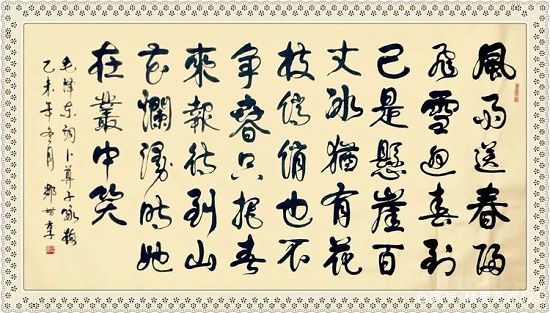 風雨送春歸
飛雪迎春到
已是懸崖百
丈冰猶有花
枝俏俏也不
争春只把春
來報待到山
花爛漫時她
在叢中笑
毛澤東詞卜算子詠梅
乙未年冬月